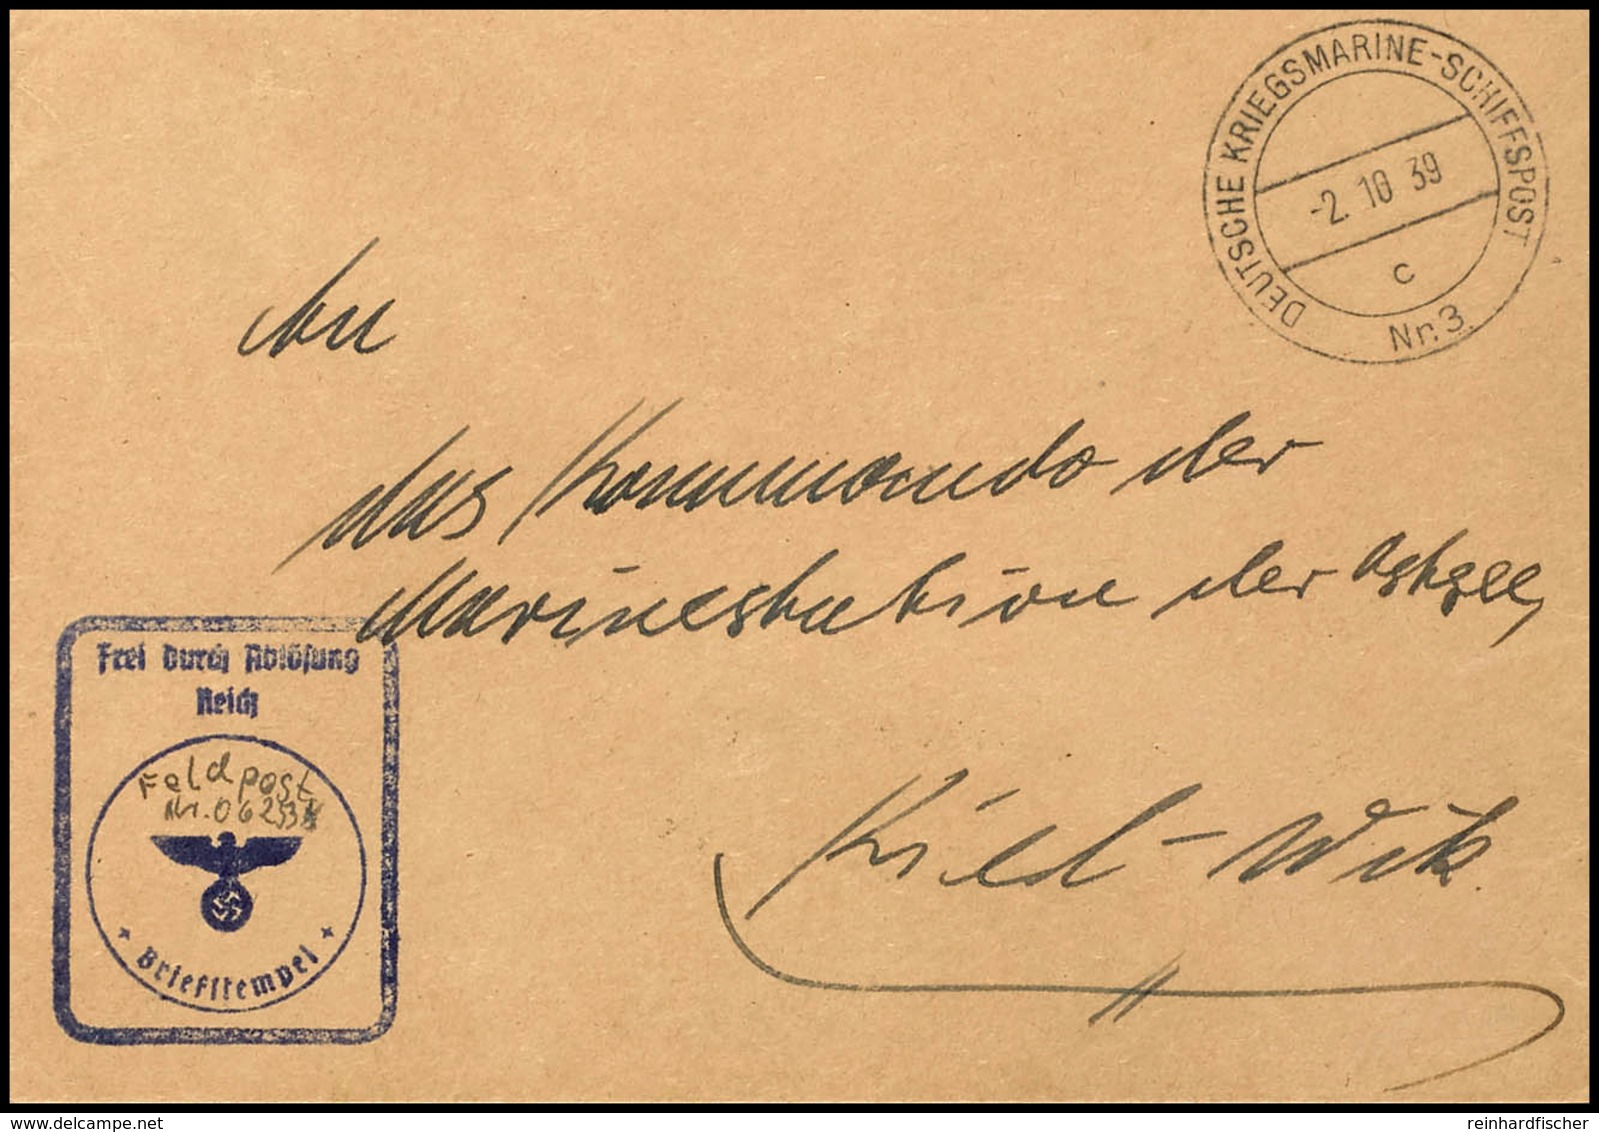 DEUTSCHE KRIEGSMARINE-SCHIFFSPOST
-2. 10 39
c
Nr. 3.
An
das Kommando der
Marinestation der Ostsee,
Kiel-Wik.
Frei durch Ablösung
Reich
Feldpost
Nr. 06233
Briefstempel
delcampe.net
reinhardfischer